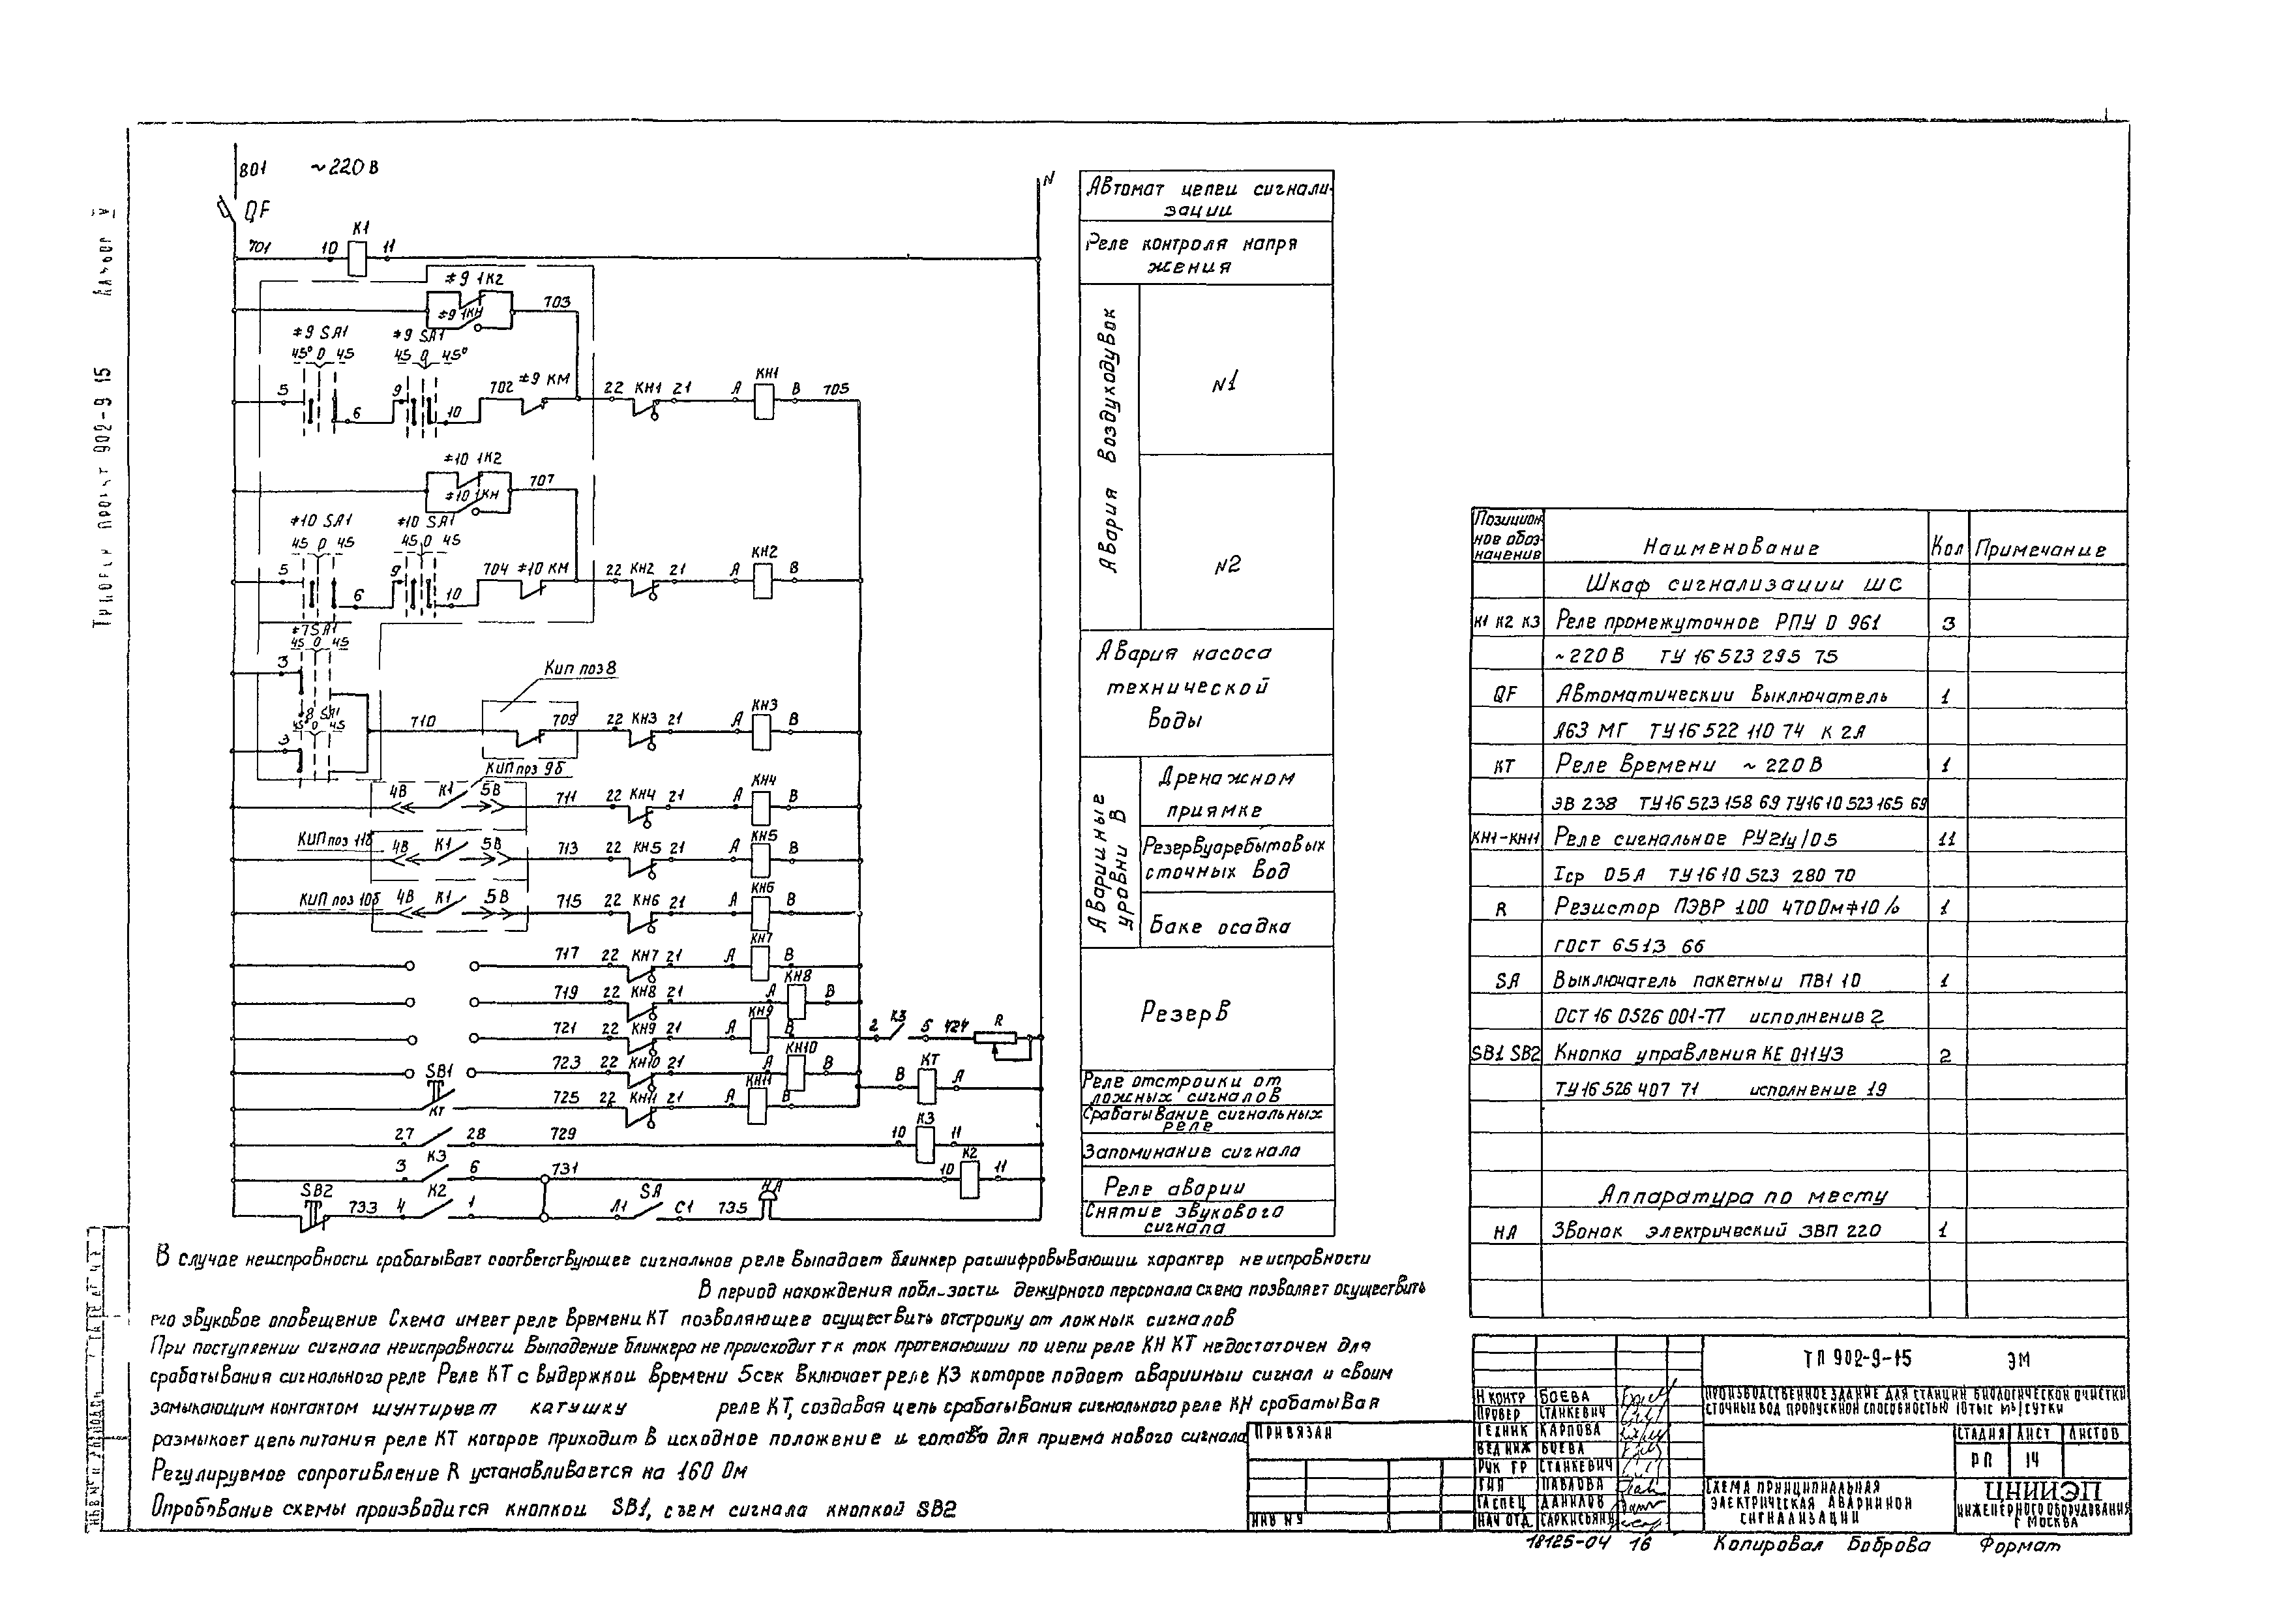 801 ~220 В
QF
N
701 10 К1 11
*9 1К2
*9 1КН
703
*9 SA1 *9 SA1
45° 0 45 45 0 45°
5 6 9 10 702 *9 КМ 22 КН1 21 А КН1 В 705
*10 1К2
*10 1КН
707
*10 SA1 *10 SA1
45 0 45 45 0 45
5 6 9 10 704 *10 КМ 22 КН2 21 А КН2 В
*7 SA1
45 0 45
3
*8 SA1
45° 0 45
3
710
Кип поз 8
709 22 КН3 21 А КН3 В
КИП поз 9б
4В К1 5В 711 22 КН4 21 А КН4 В
КИП поз 11б
4В К1 5В 713 22 КН5 21 А КН5 В
КИП поз 10б 4В К1 5В 715 22 КН6 21 А КН6 В
717 22 КН7 21 А КН7 В
719 22 КН8 21 А КН8 В
721 22 КН9 21 А КН9 В 2 К3 5 727 R
723 22 КН10 21 А КН10 В В КТ А
SB1
725 22 КН11 21 А КН11 В
КТ
27 28 729 10 К3 11
К3
3 6 731 10 К2 11
SB2 733 4 К2 1 Л1 SA С1 735 НА
Автомат цепей сигнали-
зации
Реле контроля напря
жения
Авария воздуходувок
N1
N2
Авария насоса
технической
воды
Аварийные
уровни в
Дренажном
приямке
Резервуаребытовых
сточных вод
Баке осадка
Резерв
Реле отстройки от
ложных сигналов
Срабатывание сигнальных
реле
Запоминание сигнала
Реле аварии
Снятие звукового
сигнала
Позицион
ное обоз-
начение
Наименование Кол Примечание
Шкаф сигнализации ШС
К1 К2 К3 Реле промежуточное РПУ 0 961 3
~220 В ТУ 16 523 295 75
QF Автоматический выключатель 1
А63 МГ ТУ16 522 110 74 К 2А
КТ Реле времени ~ 220 В 1
ЭВ 238 ТУ16 523 158 69 ТУ16 10 523 165 69
КН1-КН11 Реле сигнальное РУ21у/05 11
Iср 05А ТУ16 10 523 280 70
R Резистор ПЭВР 100 470 Ом ∓10% 1
ГОСТ 6513 66
SA Выключатель пакетный ПВ1 10 1
ОСТ 16 0526 001-77 исполнение 2
SB1 SB2 Кнопка управления КЕ 011У3 2
ТУ16 526 407 71 исполнение 19
Аппаратура по месту
НА Звонок электрический ЗВП 220 1
В случае неисправности срабатывает соответствующее сигнальное реле выпадает блинкер расшифровывающий характер неисправности
В период нахождения побл-зости дежурного персонала схема позволяет осуществить
его звуковое оповещение Схема имеет реле времени КТ позволяющее осуществить отстройку от ложных сигналов
При поступлении сигнала неисправности выпадение блинкера не происходит т к ток протекающий по цепи реле КН КТ недостаточен для
срабатывания сигнального реле Реле КТ с выдержкой времени 5сек включает реле К3 которое подает аварийный сигнал и своим
замыкающим контактом шунтирует катушку реле КТ, создавая цепь срабатывания сигнального реле КН срабатывая
размыкает цепь питания реле КТ которое приходит в исходное положение и готово для приема нового сигнала
Регулируемое сопротивление R устанавливается на 160 Ом
Опробование схемы производится кнопкой SB1, съем сигнала кнопкой SB2
Типовой проект 902-9-15 Альбом V
ПРИВЯЗАН
ИНВ №
Н КОНТР БОЕВА
ПРОВЕР СТАНКЕВИЧ
ТЕХНИК КАРПОВА
ВЕД ИНЖ БОЕВА
РУК ГР СТАНКЕВИЧ
ГИП ПАВЛОВА
ГЛ СПЕЦ ДАНИЛОВ
НАЧ ОТД
ТП 902-9-15 ЭМ
ПРОИЗВОДСТВЕННОЕ ЗДАНИЕ ДЛЯ СТАНЦИЙ БИОЛОГИЧЕСКОЙ ОЧИСТКИ
СТОЧНЫХ ВОД ПРОПУСКНОЙ СПОСОБНОСТЬЮ 10ТЫС М³/СУТКИ
СТАДИЯ ЛИСТ ЛИСТОВ
РП 14
СХЕМА ПРИНЦИПИАЛЬНАЯ
ЭЛЕКТРИЧЕСКАЯ АВАРИЙНОЙ
СИГНАЛИЗАЦИИ
ЦНИИЭП
ИНЖЕНЕРНОГО ОБОРУДОВАНИЯ
Г МОСКВА
18125-04 16 Копировал Боброва Формат